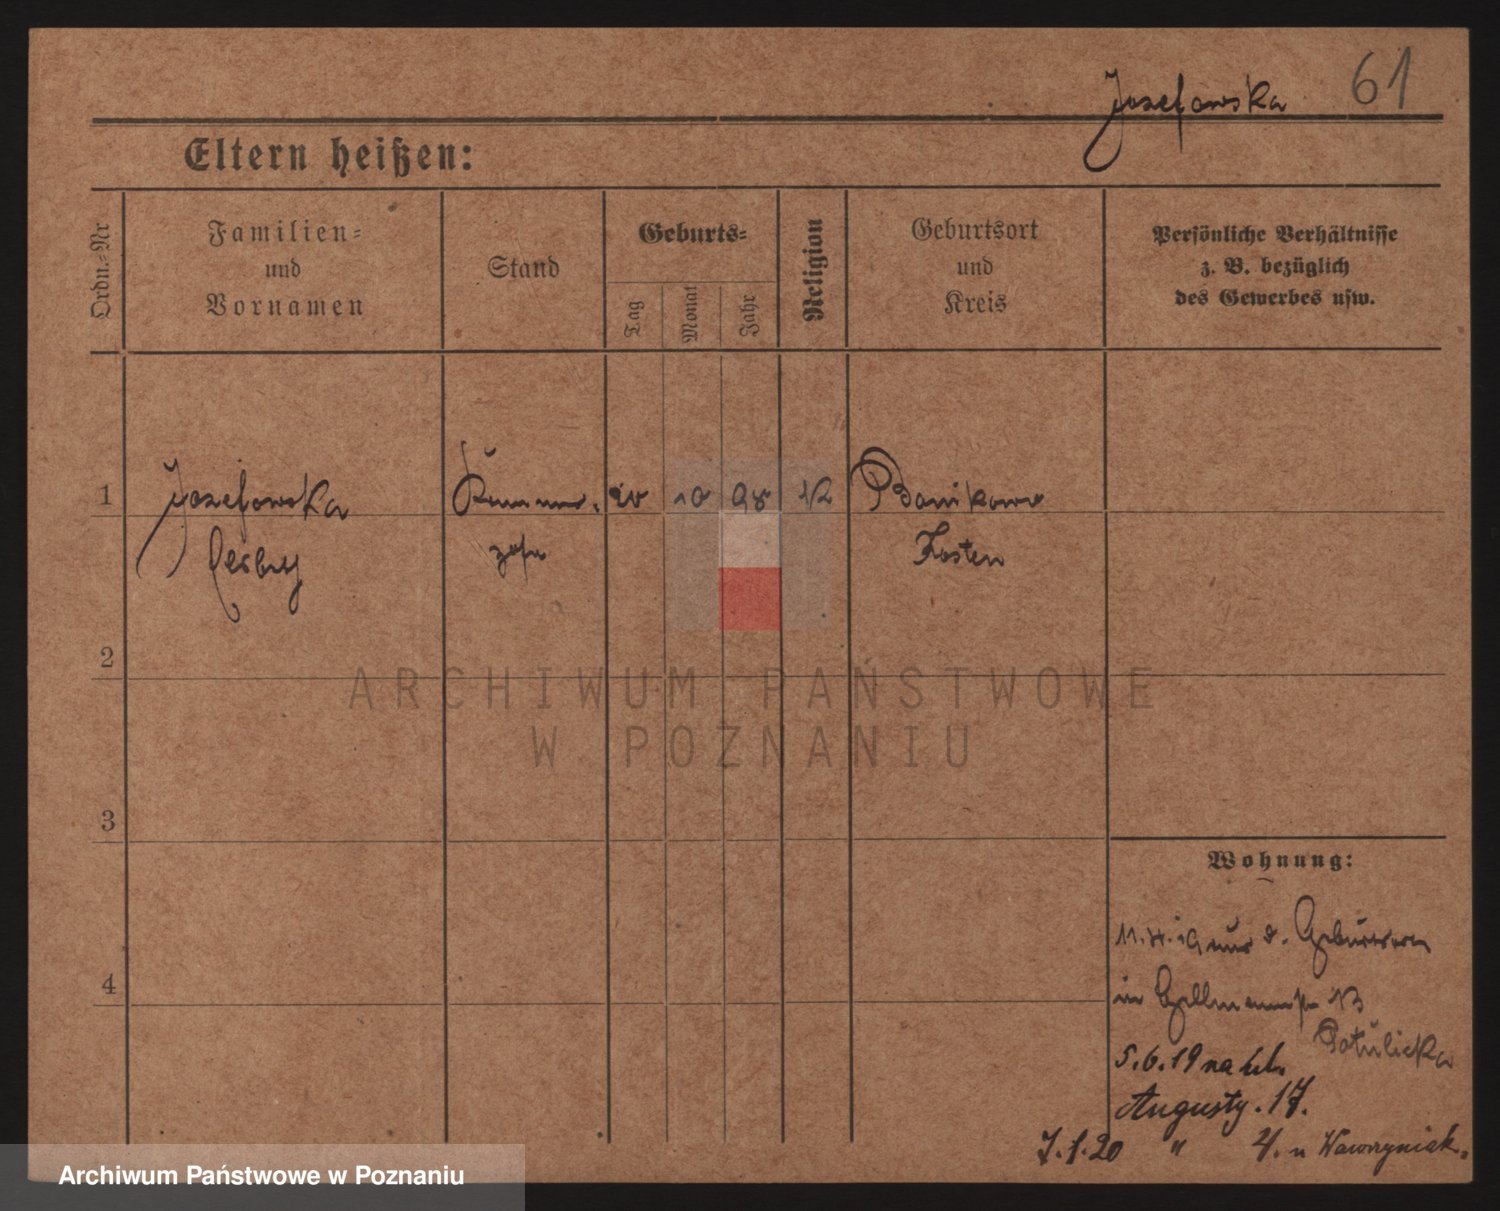 Josefowska 61
Eltern heißen:
Ordn.-Nr
Familien-
und
Vornamen
Stand
Geburts-
Tag
Monat
Jahr
Religion
Geburtsort
und
Kreis
Persönliche Verhältnisse
z. B. bezüglich
des Gewerbes usw.
1 Josefowska 20 10 98 Bonikowo
Kosten
2
ARCHIWUM PAŃSTWOWE
W POZNANIU
3
4
Wohnung:
in 13
Potulicka
5.6.19 na ul.
Augusty. 17.
7.1.20 " 4. u Wawrzyniak.
Archiwum Państwowe w Poznaniu